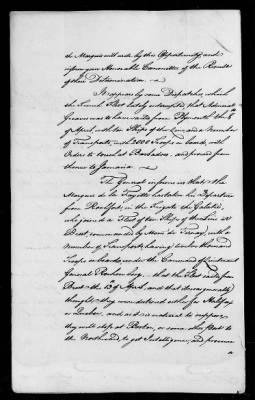 the Marquis will, with by this Opportunity, and
inform your Honorable Committee of the Result
of their Determination.
It appears by some Dispatches, which
the French Fleet lately intercepted that Admiral
Greaves was to have sailed from Plymouth the 8th
of April, with ten Ships of the Line, and a Number
of Transports, with 3000 Troops on board, with
Orders to touch at Barbadoes, and proceed from
thence to Jamaica.
The General informs us that the
Marquis de la Fayette hastened his departure
from Rochfort, in the Frigate the
who joined a Fleet of ten Ships of the Line at
Brest, commanded by Monsr. de Ternay, with a
Number of Transports, having twelve thousand
Troops on board, under the Command of Lieutenant
General that the Fleet sailed from
Brest the 13th of April, and that it was generally
thought they were destined either for Halifax
or Quebec, and as it is natural to suppose
they will stop at Boston, or some other Port to
the Northward to get Intelligence, and procure